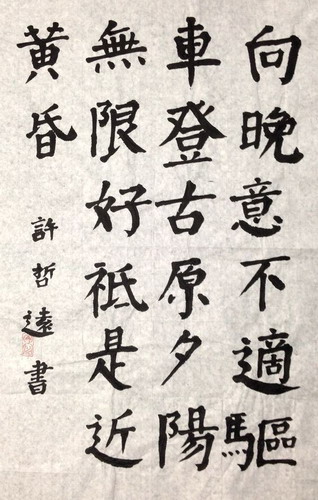 向晚意不適驅
車登古原夕陽
無限好祗是近
黃昏
許哲遠書